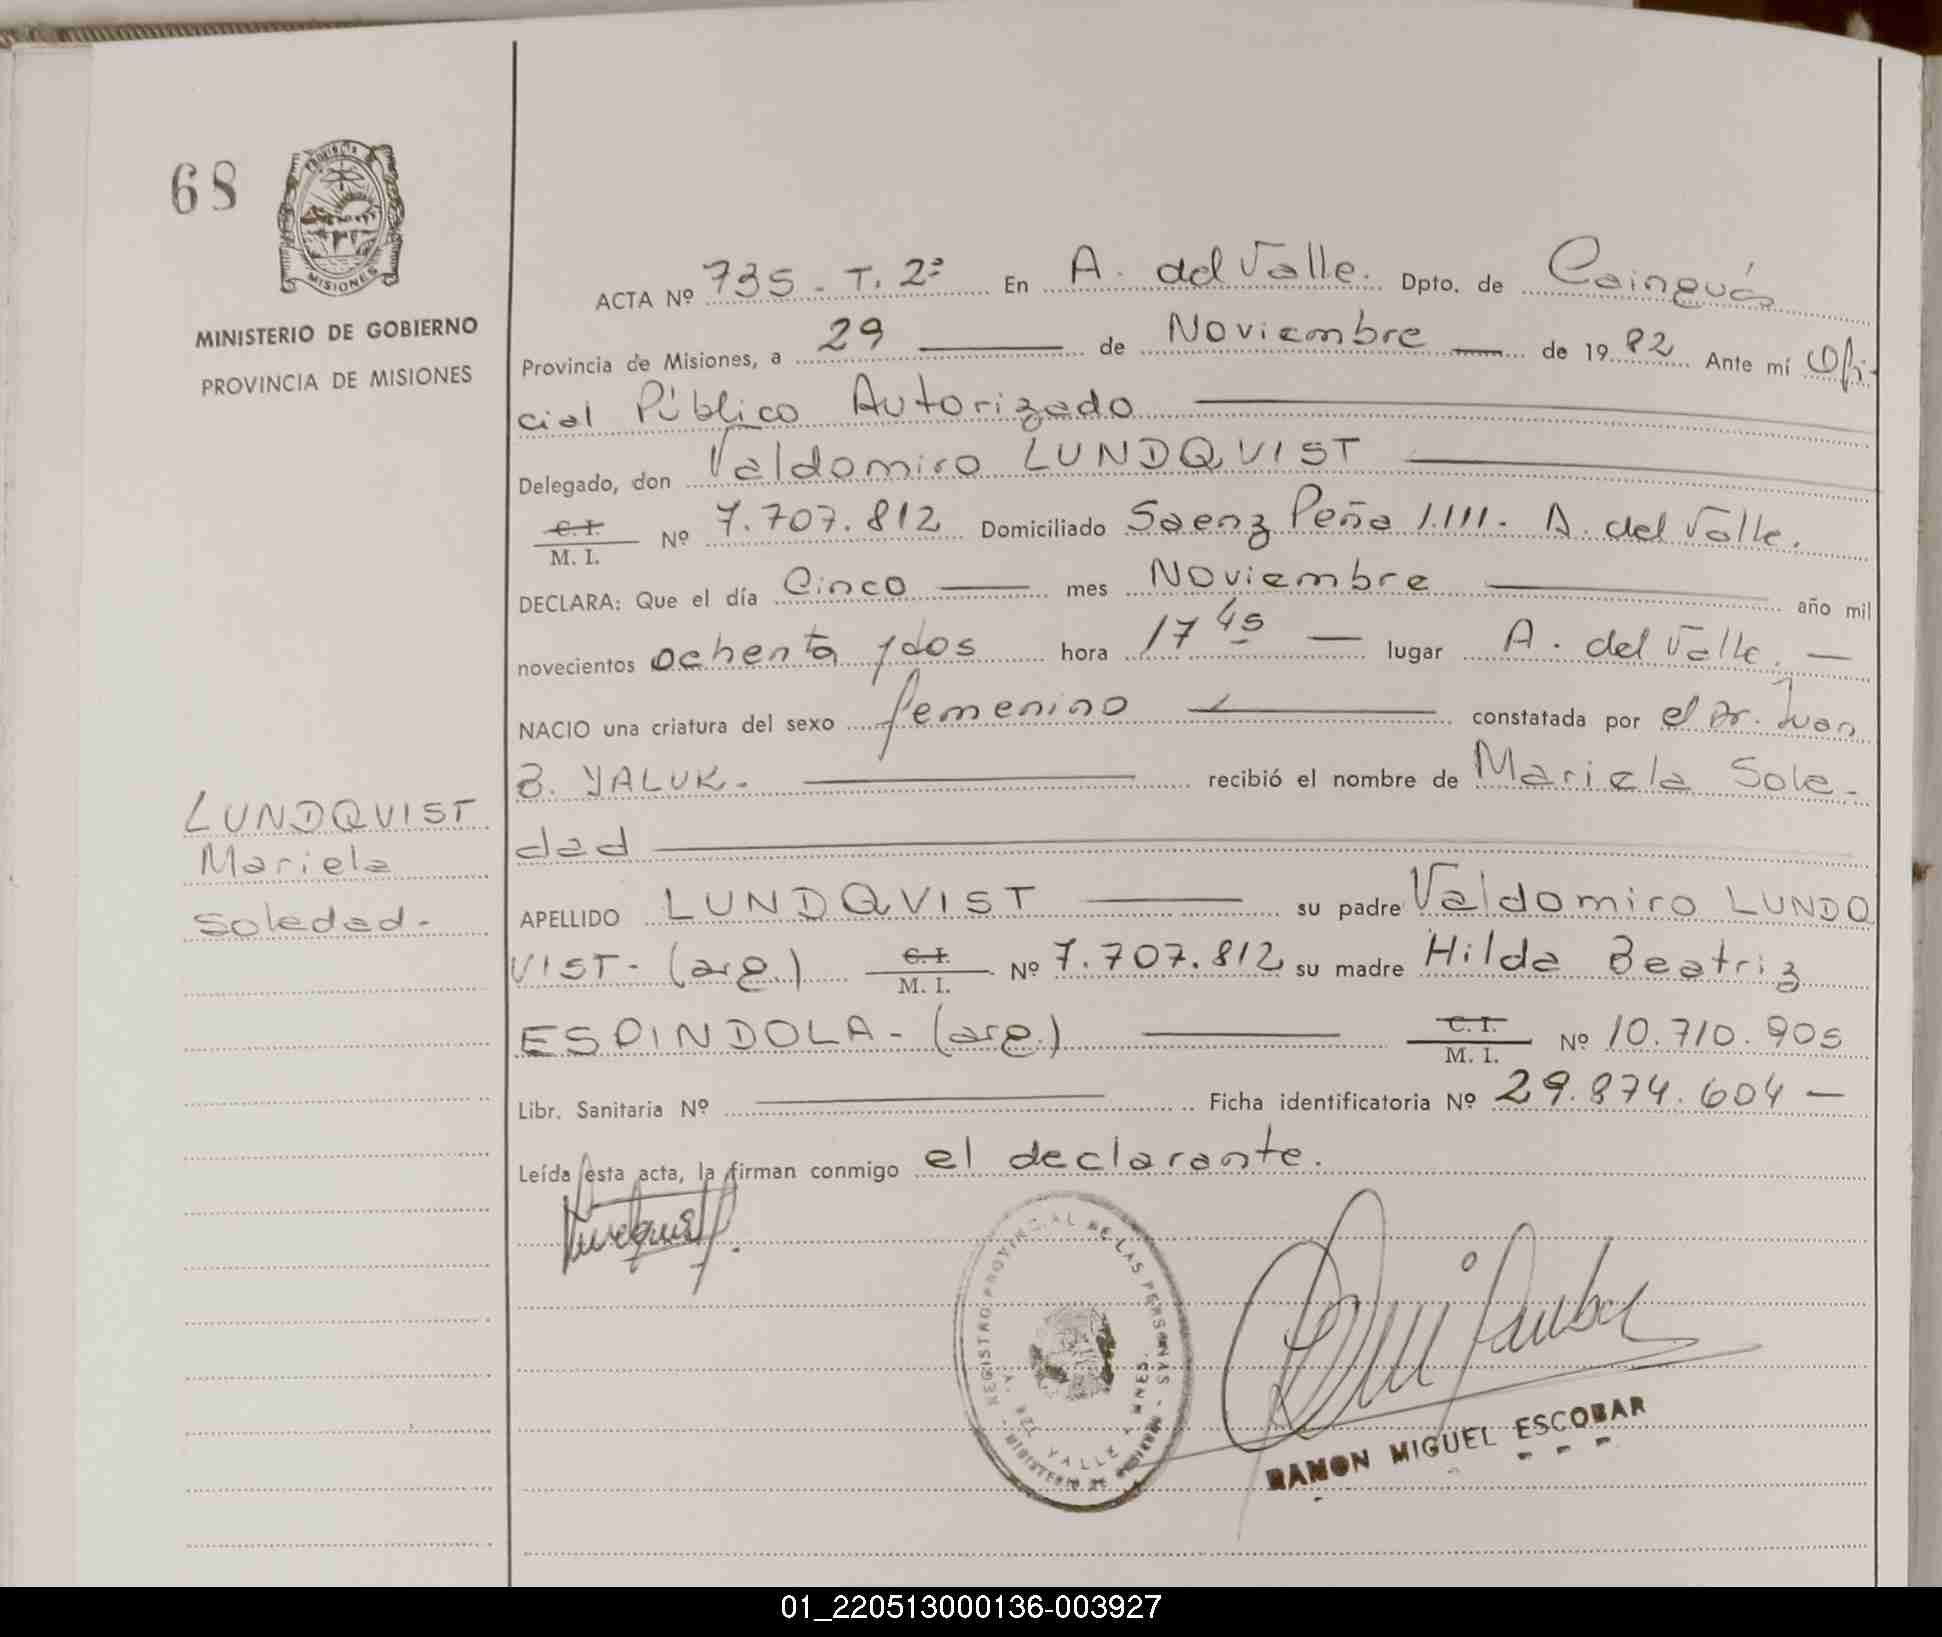 68
PROVINCIA
MISIONES
MINISTERIO DE GOBIERNO
PROVINCIA DE MISIONES
ACTA Nº 735 - T. 2º En A. del Valle. Dpto. de Cainguás
Provincia de Misiones, a 29 — de Noviembre — de 1982 Ante mí Ofi-
cial Público Autorizado —
Delegado, don Valdomiro LUNDQVIST —
C. I.
M. I. Nº 7.707.812 Domiciliado Saenz Peña 1.111. A. del Valle.
DECLARA: Que el día Cinco — mes Noviembre — año mil
novecientos ochenta y dos hora 17 45 — lugar A. del Valle. —
NACIO una criatura del sexo femenino — constatada por el Dr. Juan
B. YALUK. — recibió el nombre de Mariela Sole-
dad —
LUNDQVIST
Mariela
Soledad.
APELLIDO LUNDQVIST — su padre Valdomiro LUNDQ
VIST - (arg.) C. I. M. I. Nº 7.707.812 su madre Hilda Beatriz
ESPINDOLA - (arg.) — C. I. M. I. Nº 10.710.905
Libr. Sanitaria Nº — Ficha identificatoria Nº 29.874.604 —
Leída esta acta, la firman conmigo el declarante.
REGISTRO PROVINCIAL DE LAS PERSONAS
VALLE
RAMON MIGUEL ESCOBAR
01_220513000136-003927